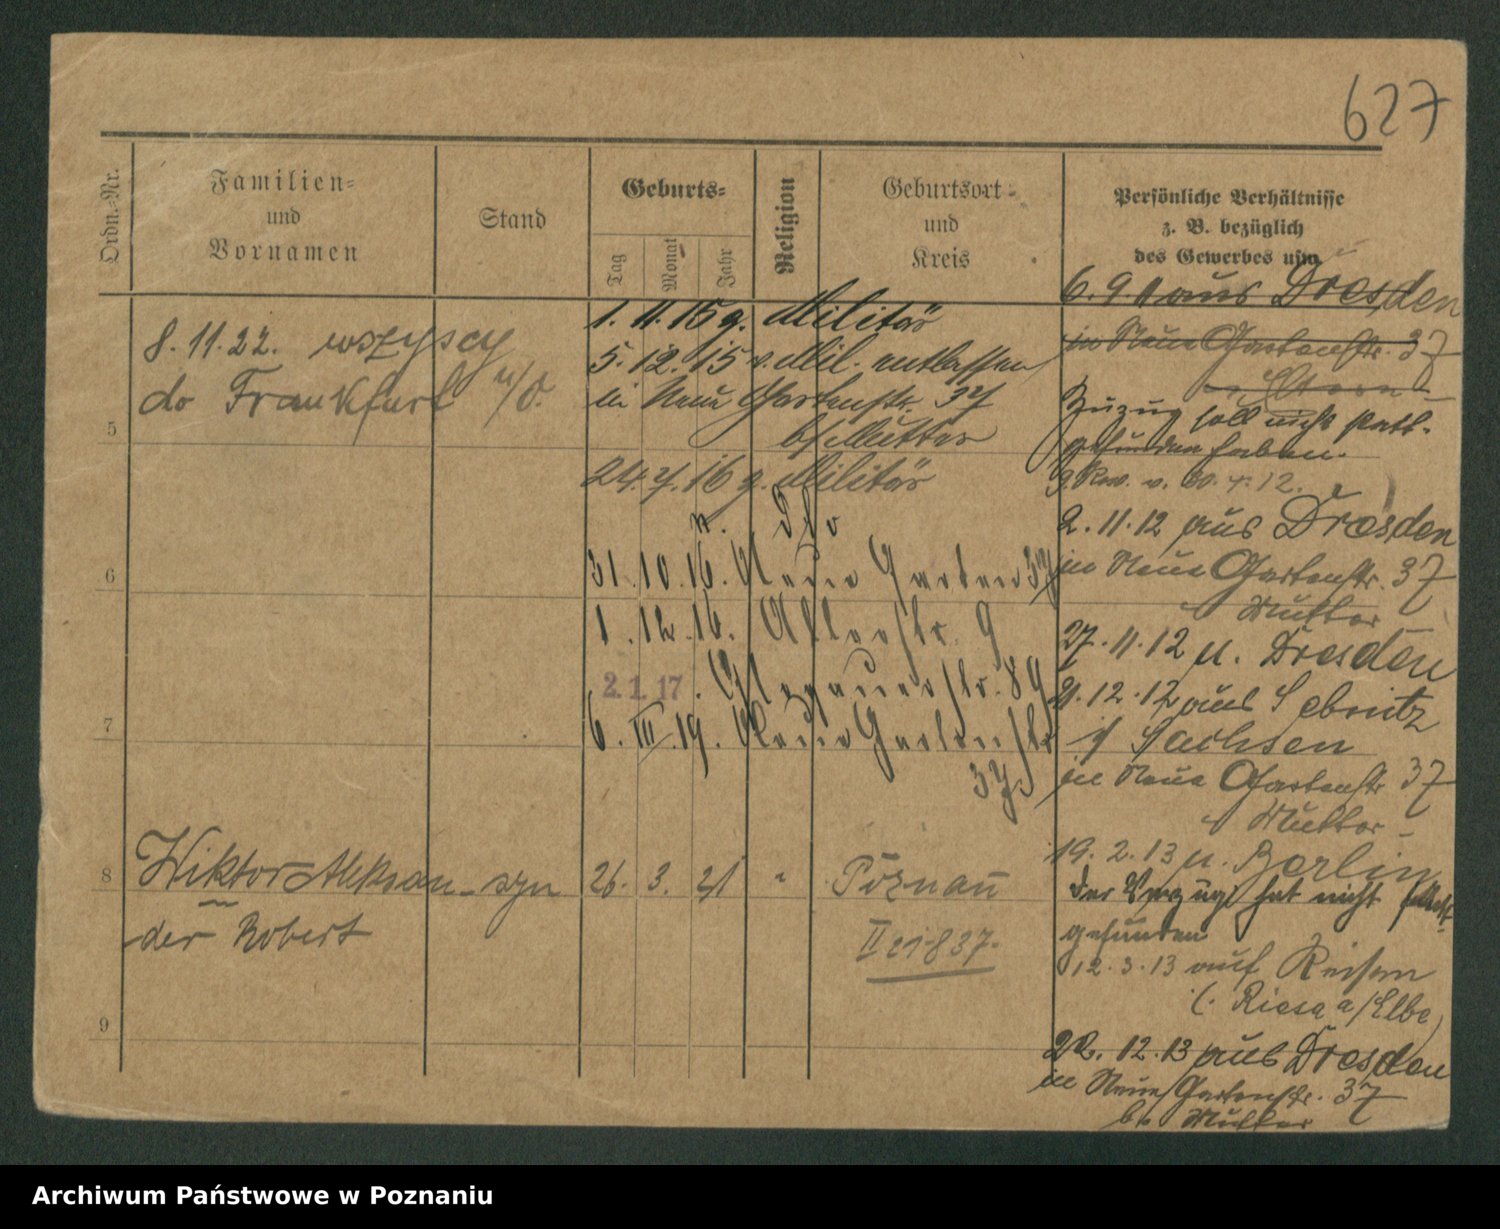 627
Ordn.-Nr.
Familien-
und
Vornamen
Stand
Geburts-
Tag
Monat
Jahr
Religion
Geburtsort
und
Kreis
Persönliche Verhältnisse
z. B. bezüglich
des Gewerbes usw.
8.11.22. wszyscy
do Frankfurt n/O.
1.11.15 g. Militär
5.12.15 v. Mil. entlassen
in Neue Gartenstr. 37
b/ Mutter
24.7.16 g. Militär
31.10.16. Neue Garten 37
1.12.16. Allerstr. 9
2.1.17. Glogauerstr. 89
6.III.19. Neue Gartenstr
37
6.9.11 aus Dresden
in Neue Gartenstr. 37
Eltern
Zuzug soll nicht statt-
gefunden haben.
2.11.12 aus Dresden
in Neue Gartenstr. 37
Mutter
27.11.12 n. Dresden
21.12.12 aus Sebnitz
i/ Sachsen
in Neue Gartenstr 37
Mutter
19.2.13 n. Berlin
Der Verzug hat nicht statt-
gefunden
12.3.13 auf Reisen
(. Riesa a/Elbe)
22.12.13 aus Dresden
in Neue Gartenstr. 37
b. Mutter
5
6
7
8
Wiktor Aleksan- syn 26. 3. 21 " Poznań
der Robert
II 21837.
9
Archiwum Państwowe w Poznaniu